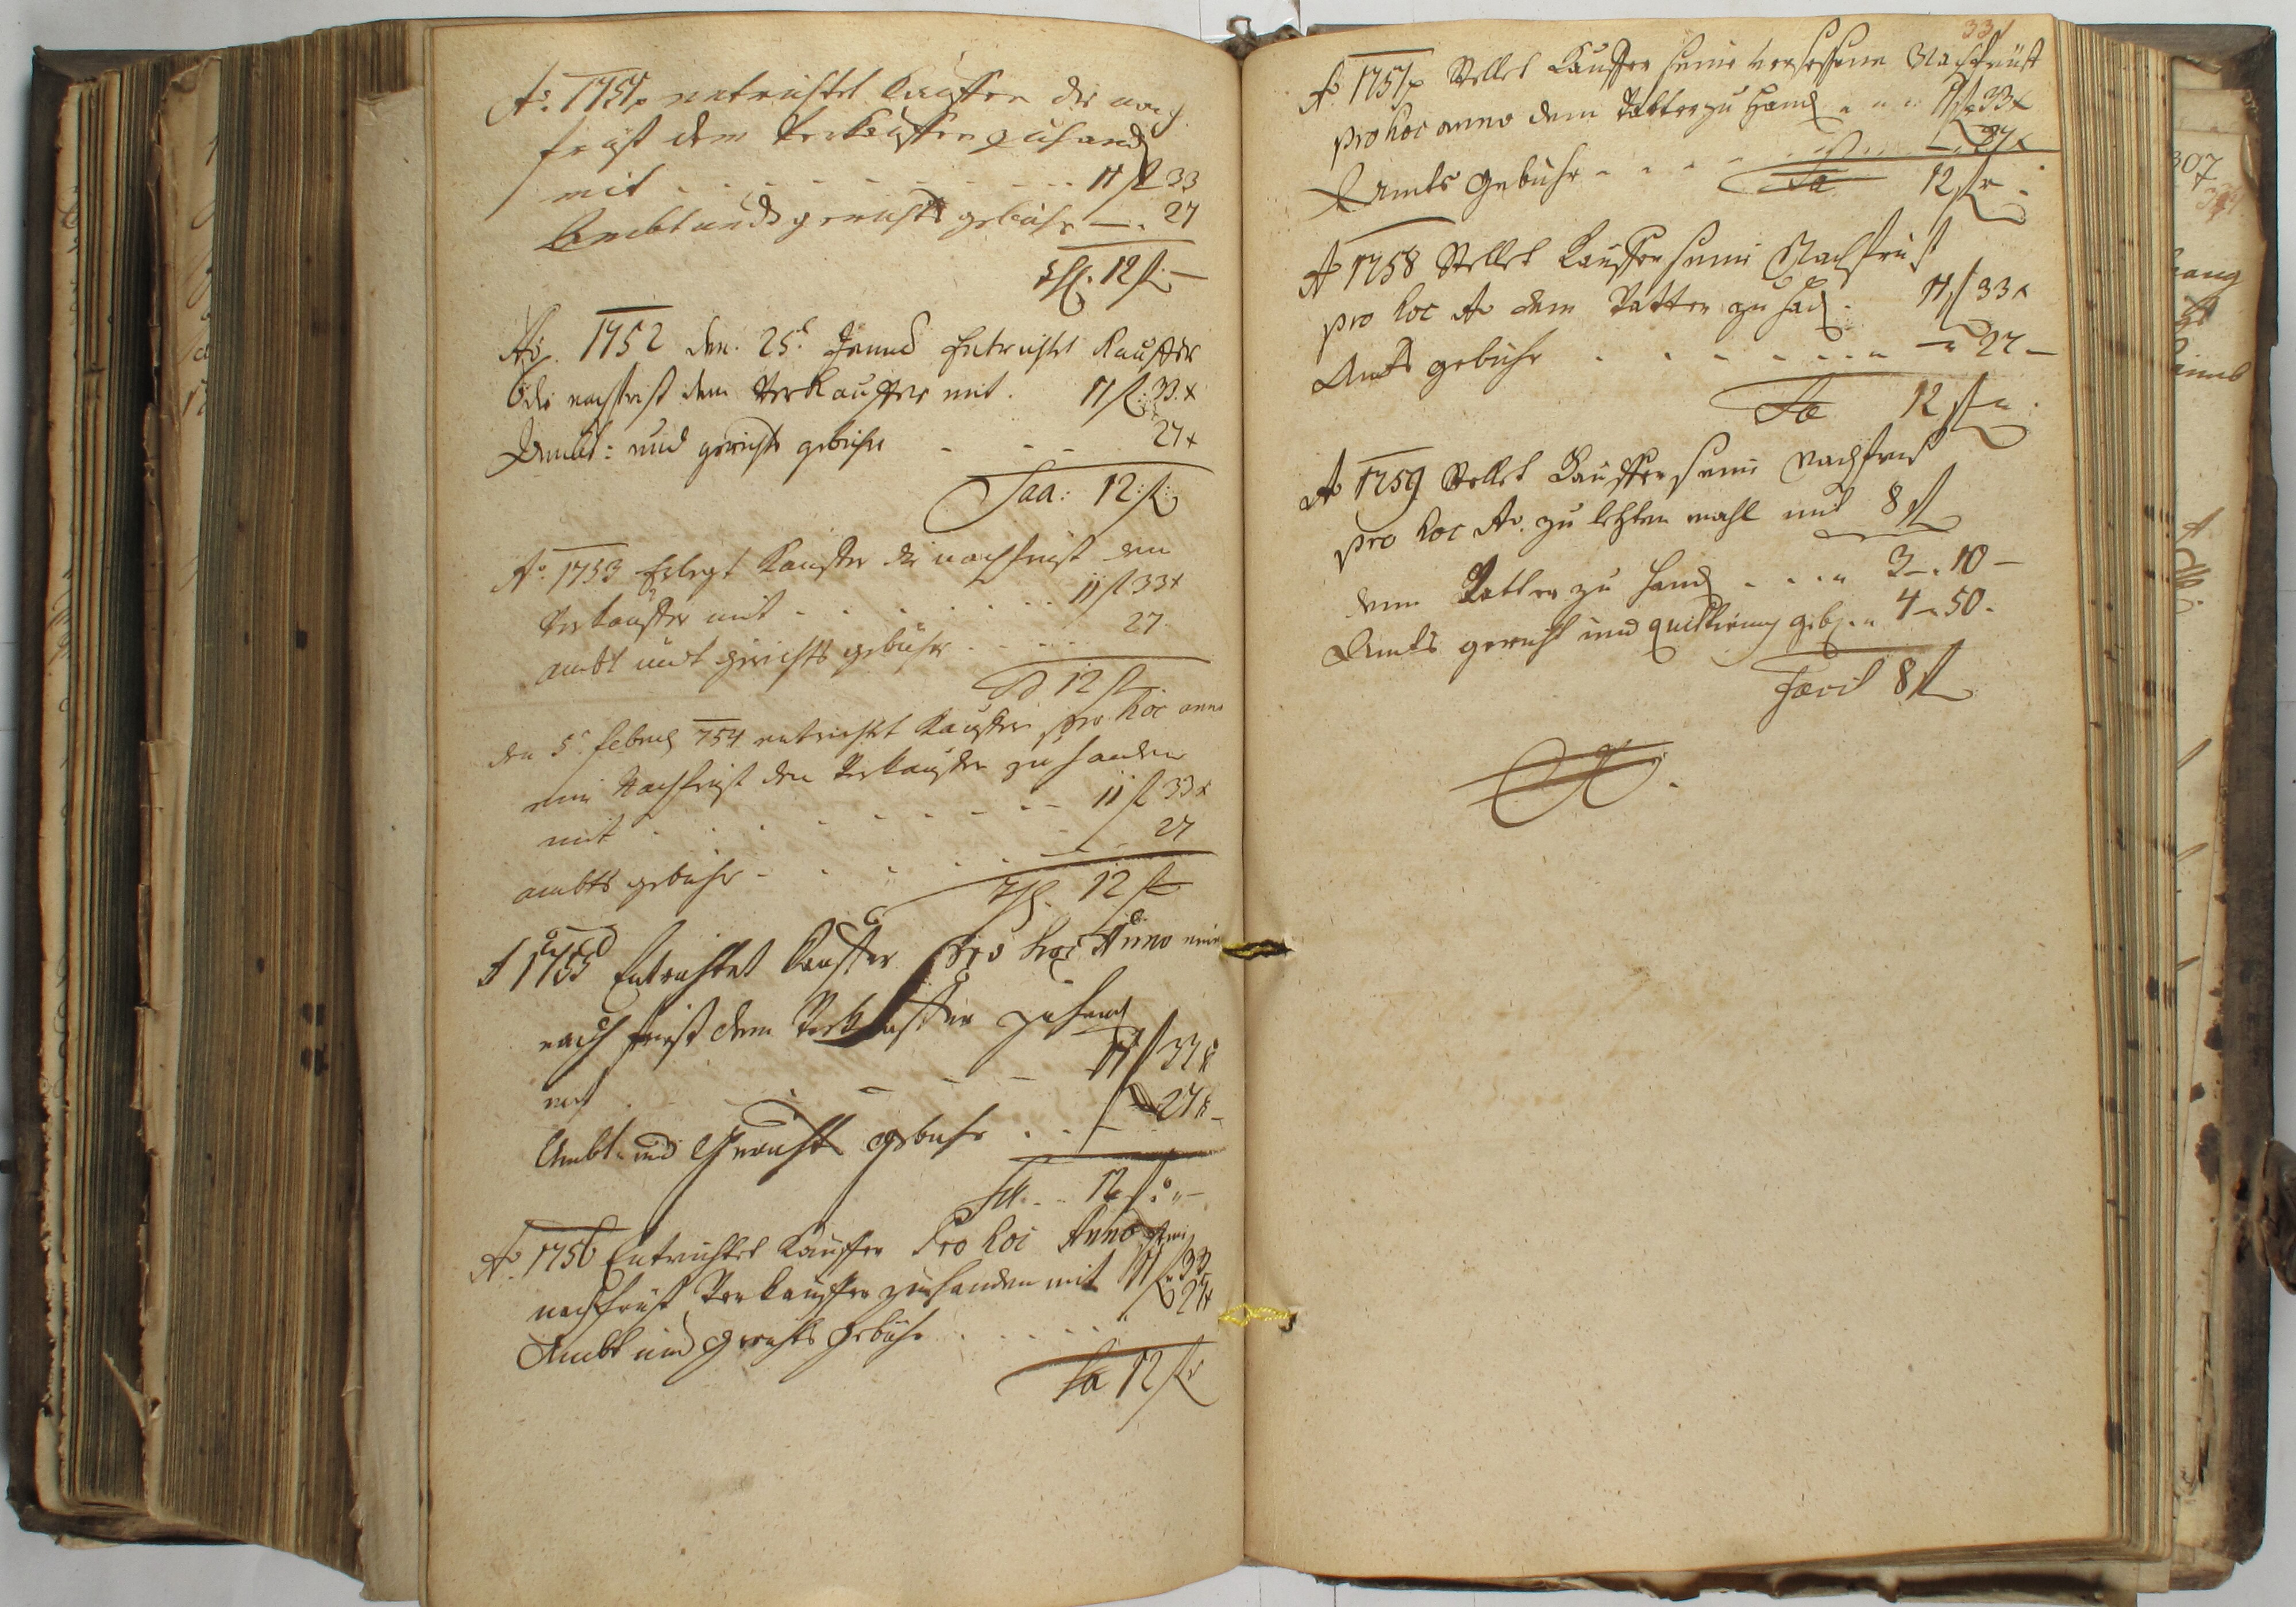 Ao. 1751 entrichtet Kauffer die nach
frist dem Verkauffer zuhand
mit . . . . . 11 fl 33
Ambt und gerichts gebühr — . 27
12 fl. —
Ao. 1752 den 25. Entricht Kauffer
die nachfrist dem Verkauffer mit . 11 fl. 33 x
Ambt: und gerichts gebühr - - - 27 x
Saa: 12 fl
Ao. 1753 Erlegt Kauffer die nachfrist dem
Verkauffer mit . . . . . 11 fl 33 x
ambt undt gerichts gebühr . . . . 27.
12 fl
den 5. febr 754 entricht Kauffer pro hoc anno
eine Nachfrist dem Verkauffer zu handen
mit . . . . . . 11 fl 33 x
ambts gebühr - . . . . 27
12 fl
Ao 1755 Entrichtet Kauffer pro hoc Anno eine
nach frist dem Verkauffer zuhand
mit . . - - - 11 fl 33 x
Ambt und Gericht gebühr . . . 27 x
12 fl
Ao. 1756 Entrichtet Kauffer Pro hoc Anno
nachfrist Verkauffer zuhanden mit 11 fl 33
Ambt und Gerichts Gebühr . . . . . 27 x
Sa 12 fl
33
Ao. 1757 Stellet Kauffer seine versessene Nachfrist
pro hoc anno dem Vatter zu Hand . . . 11 fl 33 x
Amts Gebühr - - - 27 x
Sa 12 fl
Ao 1758 Stellet Kauffer seine Nachfrist
pro hoc Ao dem Vatter zu Hand . 11 fl 33 x
Amts gebühr . . - - . . . 27 —
Sa 12 fl
Ao 1759 Stellet Kauffer seine Nachfrist
pro hoc Ao. zu letzten mahl mit 8 fl
dem Vatter zu Hand . . . 3 — . 10 —
Amts gericht und quittirung geb . . 4 — 50 .
Facit 8 fl